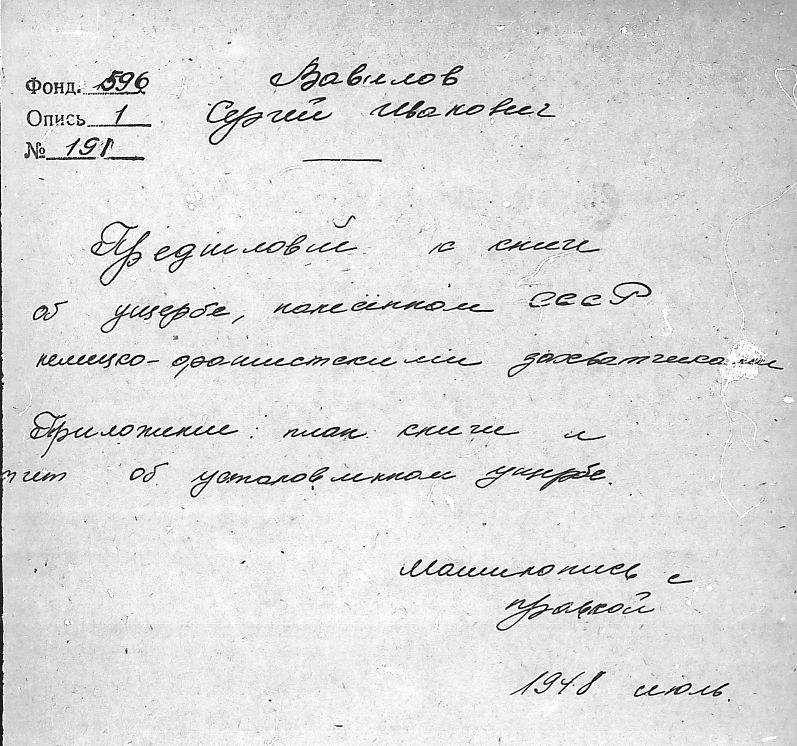 Фонд. 596
Опись 1
№ 191
Вавилов
Сергей Иванович
Предисловие к книге
об ущербе, нанесённом СССР
немецко-фашистскими захватчиками
Приложение: план книги и
отчет об установленном ущербе.
Машинопись с
правкой
1948 июль.